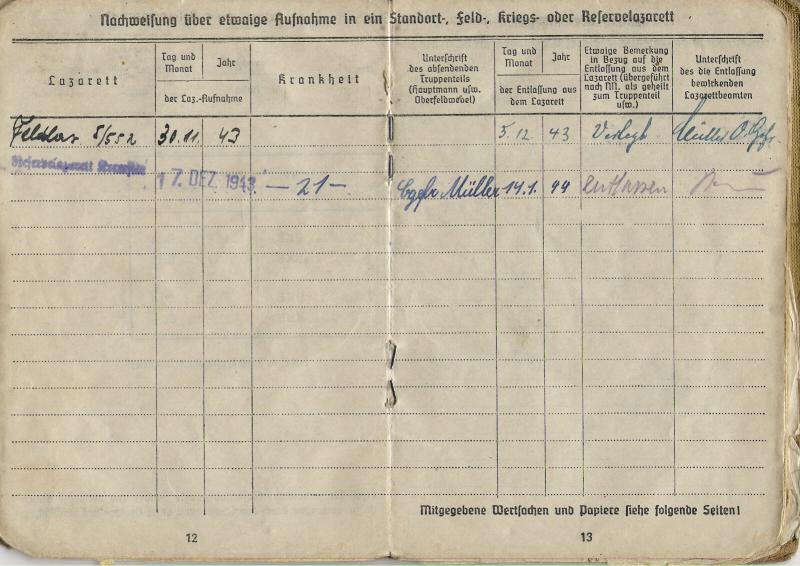 Nachweisung über etwaige Aufnahme in ein Standort-, Feld-, Kriegs- oder Reservelazarett
Lazarett
Tag und
Monat
Jahr
der Laz.-Aufnahme
Krankheit
Unterschrift
des absendenden
Truppenteils
(Hauptmann usw.
Oberfeldwebel)
Tag und
Monat
Jahr
der Entlassung aus
dem Lazarett
Etwaige Bemerkung
in Bezug auf die
Entlassung aus dem
Lazarett (übergeführt
nach NN. als geheilt
zum Truppenteil
usw.)
Unterschrift
des die Entlassung
bewirkenden
Lazarettbeamten
Feldlaz 5/552 30.11. 43 5.12 43 Verlegt Müller O.Gefr.
Reservelazarett 17. DEZ. 1943 — 21 — Müller 14.1. 44 entlassen
Mitgegebene Wertsachen und Papiere siehe folgende Seiten!
12
13